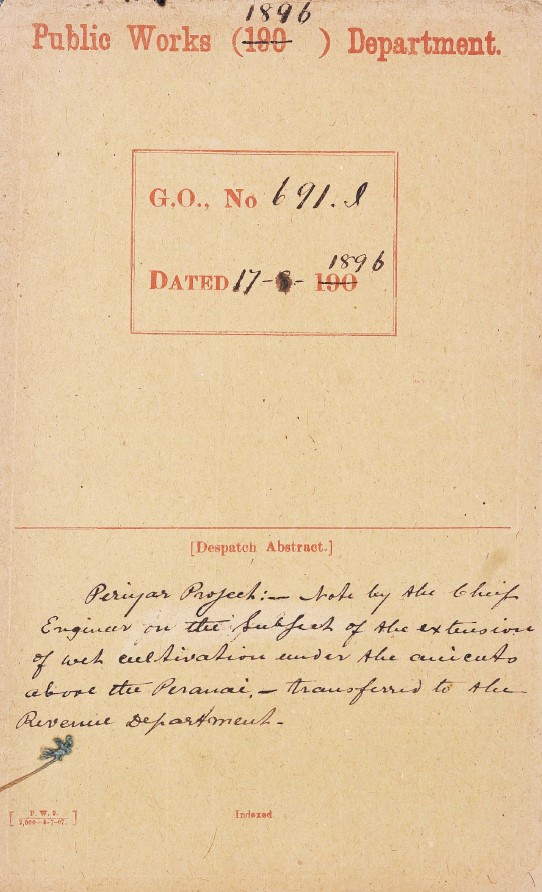 1896
Public Works (190 ) Department.
G.O., No 691.I
1896
DATED 17-8- 190
[Despatch Abstract.]
Periyar Project:— Note by the Chief
Engineer on the subject of the extension
of wet cultivation under the anicuts
above the Peranai, — transferred to the
Revenue Department—
[P. W. 9.
2,000—5-7-07.]
Indexed